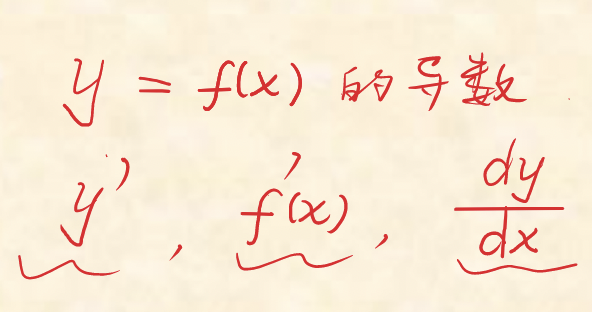 y = f(x) 的导数
y', f'(x), dy/dx